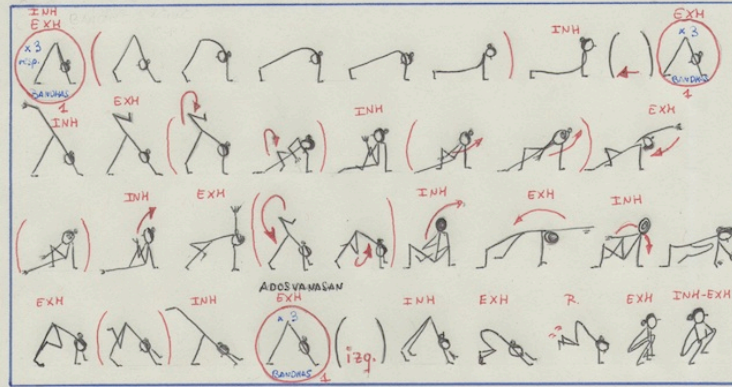 INH
EXH
x 3
resp.
BANDHAS
1
INH
EXH
x 3
BANDHAS
1
INH
EXH
EXH
INH
EXH
INH
EXH
INH
EXH
INH
ADOSVANASAN
EXH
x 3
BANDHAS
1
(izq.)
INH
EXH
R.
EXH
INH-EXH